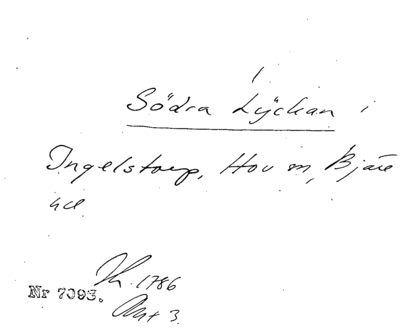 Södra Lyckan i
Ingelstorp, Hov sn, Bjäre
hd
Th. 1786
Akt 3.
Nr 7093.